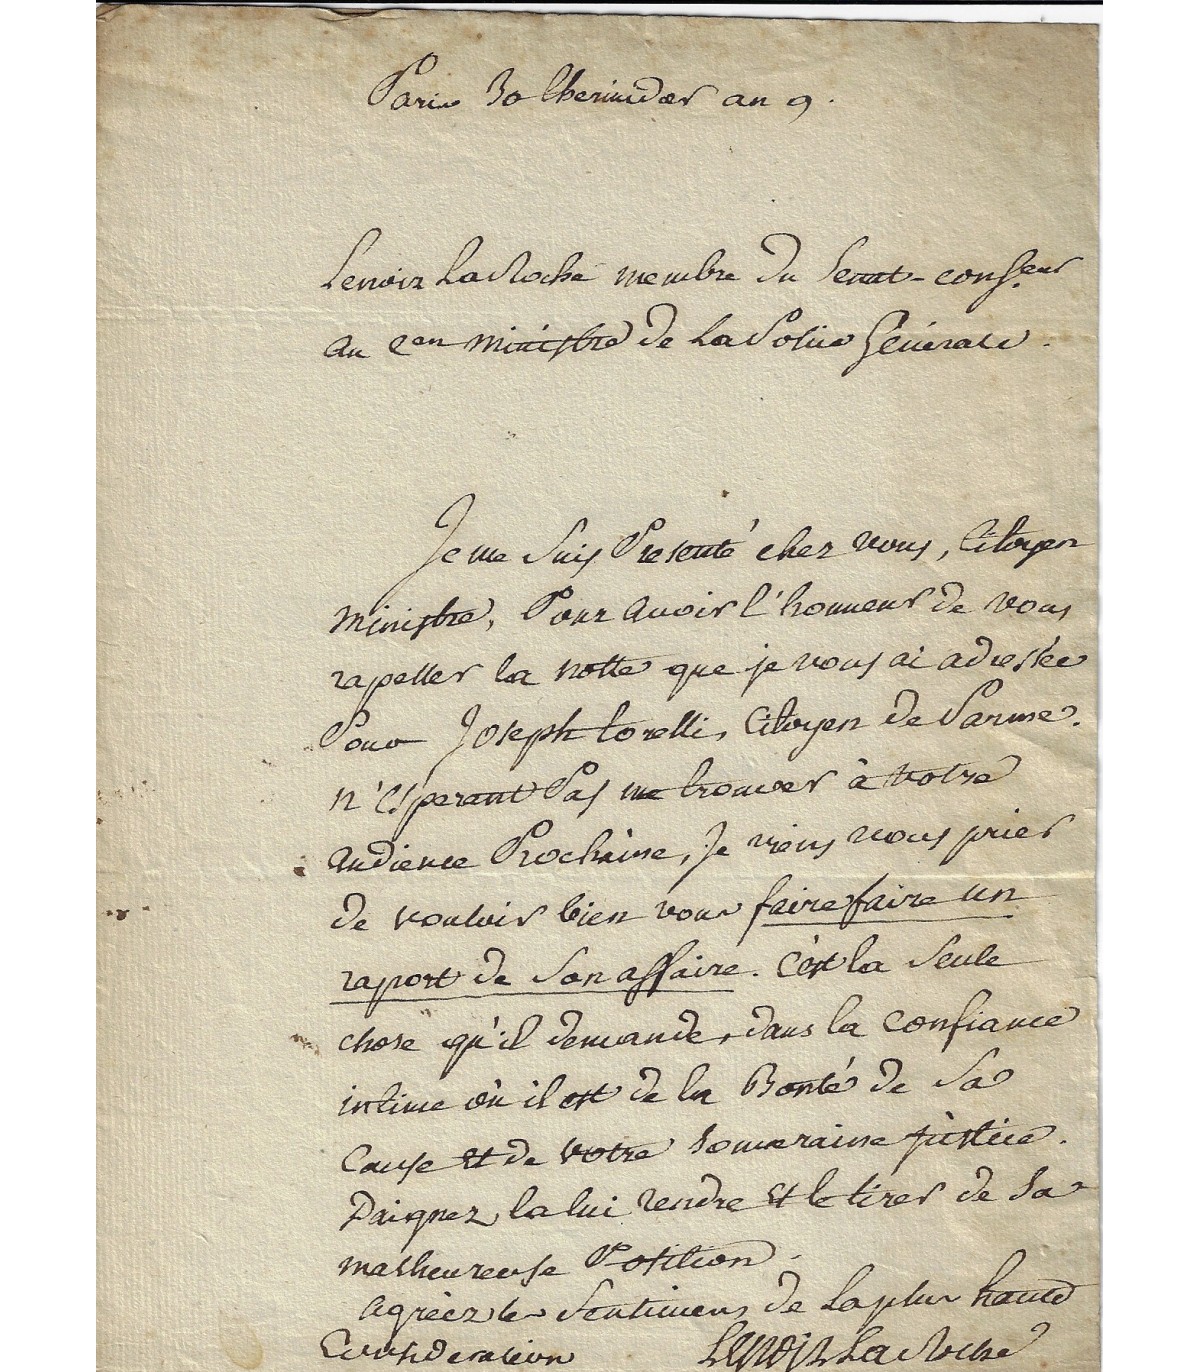 Paris 30 thermidor an 9.
Lenoir LaRoche membre du Senat-conser
au cen ministre de La Police Générale.
Je me suis Presenté chez vous, Citoyen
ministre, Pour avoir l'honneur de vous
rapeller la notte que je vous ai adressée
Pour Joseph torelli, Citoyen de Parme.
n'esperant Pas me trouver à votre
audience Prochaine, Je viens vous prier
de vouloir bien vous faire faire un
raport de son affaire. C'est la seule
chose qu'il demande, dans la confiance
intime où il est de la Bonté de sa
Cause et de votre souveraine justice.
Daignez la lui rendre et le tirer de sa
malheureuse Position.
agréez les sentimens de la plus haute
Consideration Lenoir La Roche